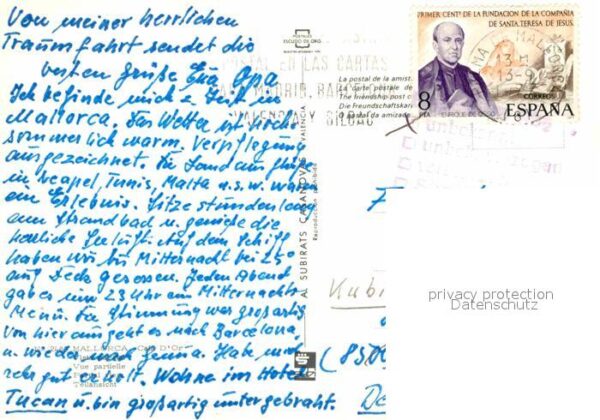 Von meiner herrlichen
Traumfahrt sendet die
besten Grüße Eua Opa
Ich befinde mich z. Zeit in
Mallorca. Das Wetter ist hoch-
sommerlich warm, Verpflegung
ausgezeichnet. Die Landausflüge
in Neapel, Tunis, Malta u.s.w. waren
ein Erlebnis. Sitze stundenlang
am Strandbad u. genieße die
herrliche Seeluft. Auf dem Schiff
haben wir bis Mitternacht bei 25°
auf Deck gesessen. Jeden Abend
gab es um 23 Uhr ein Mitternachts-
Menü. Die Stimmung war großartig
Von hier aus geht es nach Barcelona
u. wieder nach Genua. Habe mich
sehr gut erholt. Wohne im Hotel
Tucan u. bin großartig untergebracht.
MALLORCA - Cala D'Or
Vue partielle
Teilansicht
POSTALES
ESCUDO DE ORO
AL SUBIRATS CASANOVAS
VALENCIA
Reproducción prohibida
POSTAL EN LAS CARTAS
MADRID, BAR
VALENCIA Y BILBAO
La postal de la amist
La carte postale de
The friendship post c
Die Freundschaftskar
O postal da amizade
PRIMER CENT. DE LA FUNDACION DE LA COMPAÑIA
DE SANTA TERESA DE JESUS.
8
PTA
ENRIQUE DE OSSO
CORREOS
ESPAÑA
13-9
(850
privacy protection
Datenschutz